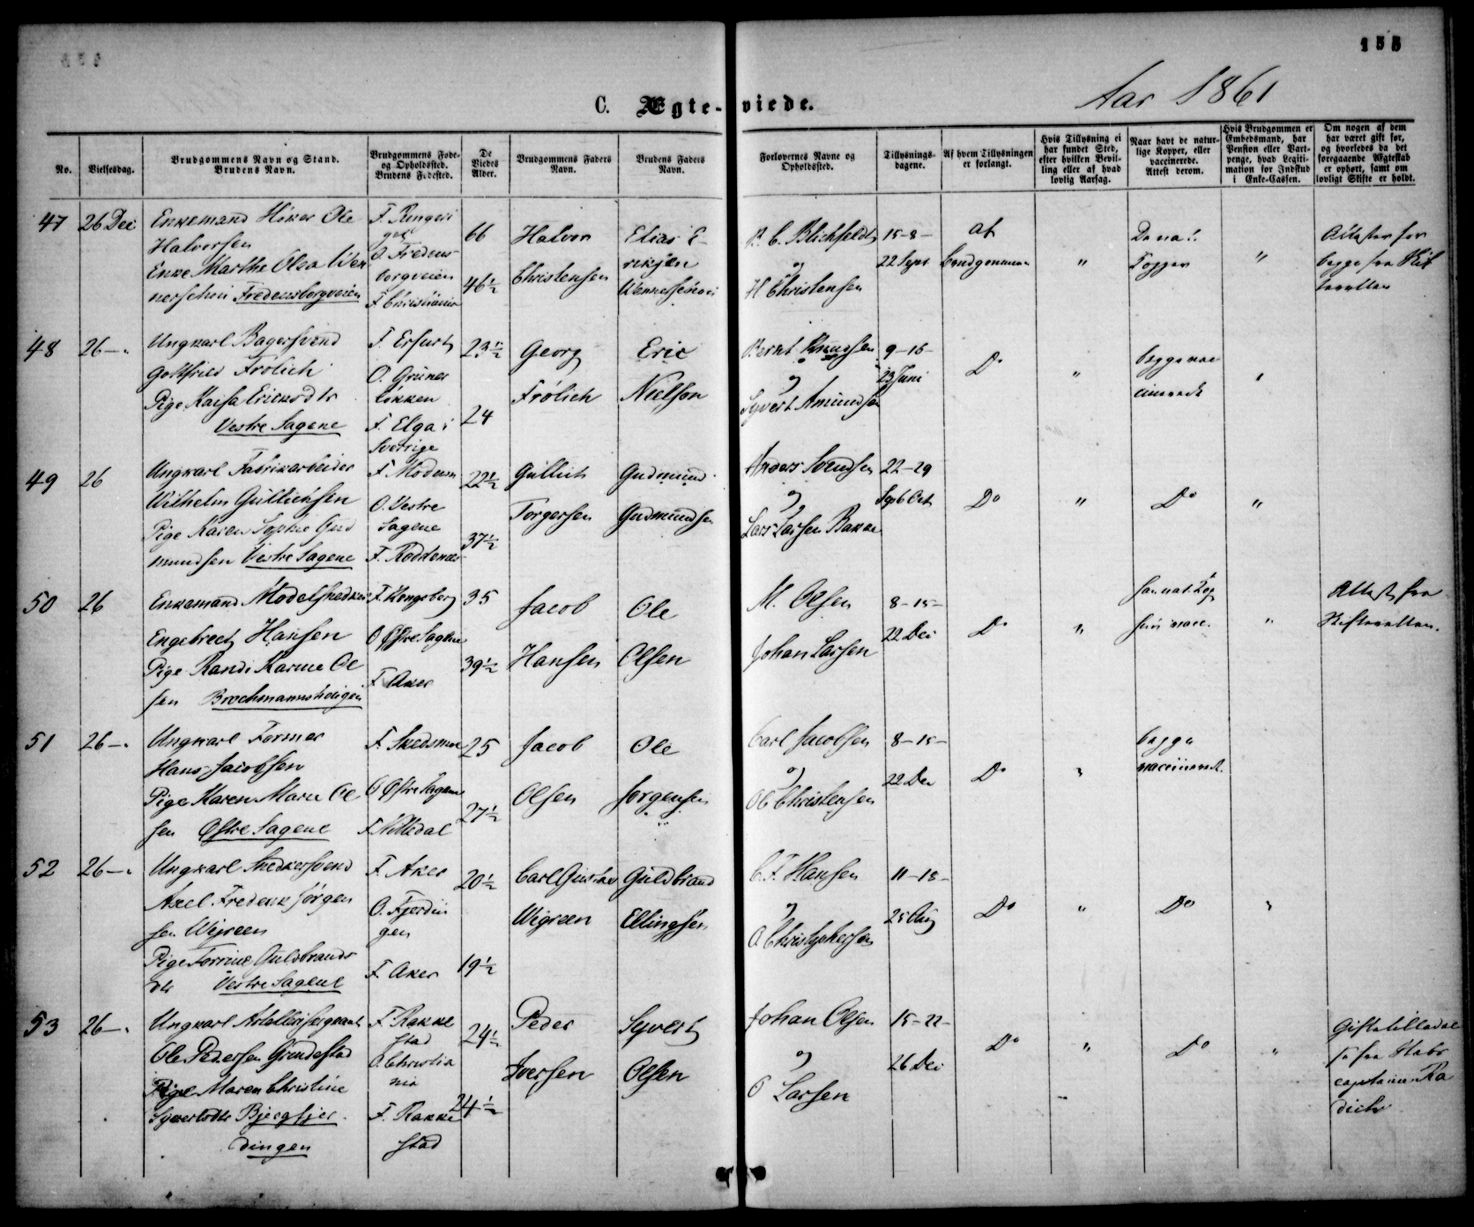 155
Aar 1861
C. Ægte-viede.
No.
Vielsesdag.
Brudgommens Navn og Stand.
Brudens Navn.
Brudgommens Føde-
og Opholdssted.
Brudens Fødested.
De
Viedes
Alder.
Brudgommens Faders
Navn.
Brudens Faders
Navn.
Forlovernes Navne og
Opholdssted.
Tillysnings-
dagene.
Af hvem Tillysningen
er forlangt.
Hvis Tillysning ei
har fundet Sted,
efter hvilken Bevil-
ling eller af hvad
lovlig Aarsag.
Naar havt de natur-
lige Kopper, eller
vaccinerede.
Attest derom.
Hvis Brudgommen er
Embedsmand, har
Pension eller Vart-
penge, hvad Legiti-
mation for Indskud
i Enke-Cassen.
Om nogen af dem
har været gift før,
og hvorledes da det
foregaaende Ægteskab
er ophørt, samt om
lovligt Skifte er holdt.
47
26 Dec
Enkemand Høker Ole
Halvorsen
Enke Marthe Olea Wen
nersteen Fredensborgveien
O. Fredens
borgveien
F. Christiania
66
46½
Halvor
Christensen
Elias E
H Christensen
15-8-
22 Sept
af
brudgommen
"
De nat.
Kopper
"
Attester for
begge fra Skif
teretten
48
26 -
Ungkarl Bagersvend
Gottfried Frölich
Pige Kaisa Ericksdtr
Vestre Sagene
F. Erfurt
O. Grüner
løkken
F. Elga i
Sverrige
23½
24
Georg
Frölich
Eric
Nielson
Bernt Knudsen
og
Syvert Amundsen
9-16
23 Juni
Do
"
begge vac
cinerede
"
49
26
Ungkarl Fabrikarbeider
Wilhelm Gulliksen
Pige Karen Sophie Gud
mundsen Vestre Sagene
F. Modum
O. Vestre
Sagene
F. Roddenæs
22½
37½
Gullich
Torgersen
Gudmund
Gudmundsen
Anders Svendsen
og
Lars Larsen Bakke
22-29
Sept Oct
Do
"
Do
"
50
26
Enkemand Modelsnedker
Engebrect Hansen
Pige Randi Karine Ol
sen Brochmannsholigen
F. Kongsberg
O Østre Sagene
F. Aker
35
39½
Jacob
Hansen
Ole
Olsen
M. Olsen
Johan Larsen
8-15-
22 Dec
Do
"
han nat. Kop
hun vacc.
"
Attest fra
Skifteretten.
51
26 -
Ungkarl Former
Hans Jacobsen
Pige Karen Marie Ol
sen Østre Sagene
F. Skedsmo
O Østre Sagene
F. Nittedal
25
27½
Jacob
Olsen
Ole
Jørgensen
Carl Jacobsen
og
Ol Christensen
8-15-
22 Dec
Do
"
begge
vaccinerede.
52
26 -
Ungkarl Snedkersvend
Axel Frederik Jörgen
sen Wigreen
Pige Torrine Guldbrands
dtr Vestre Sagene
F. Aker
O. Fjerdin
gen
F. Aker
20½
19½
Carl Gustav
Wigreen
Guldbrand
Ellingsen
C. F. Hansen
og
A Christophersen
11-18-
25 Aug
Do
"
Do
"
53
26 -
Ungkarl Artillerisergeant
Ole Pedersen Grindestad
Pige Maren Christine
Syvertsdtr Bjergfjer
dingen
F. Rakke
stad
O. Christia
nia
F. Rakke
stad
24½
24½
Peder
Iversen
Syvert
Olsen
Johan Olsen
og
O Larsen
15-22-
26 Dec
Do
"
Do
"
Giftetilladel
se fra Stabs
captainen Ra
dich